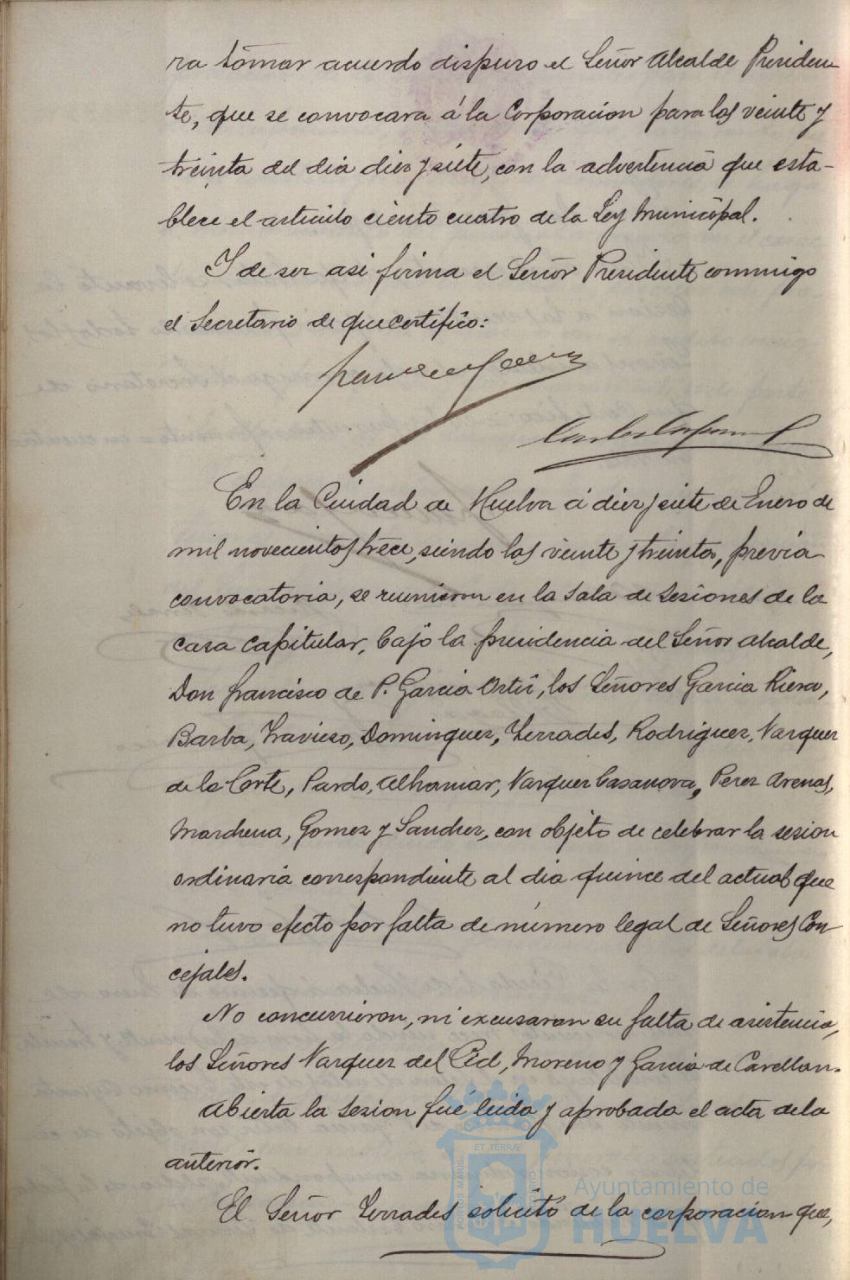 ra tomar acuerdo dispuso el Señor Alcalde Presiden
te, que se convocara á la Corporacion para las veinte y
treinta del dia diez y siete, con la advertencia que esta-
blece el articulo ciento cuatro de la Ley Municipal.
Y de ser asi firma el Señor Presidente conmigo
el Secretario de que certifico:
En la Ciudad de Huelva á diez y siete de Enero de
mil novecientos trece, siendo las veinte y treinta, previa
convocatoria, se reunieron en la Sala de Sesiones de la
casa Capitular, bajo la presidencia del Señor Alcalde,
Don Francisco de P. Garcia Ortiz, los Señores Garcia Riera,
Barba, Travieso, Dominguez, Terrades, Rodriguez, Vazquez
de la Corte, Pardo, Alhamar, Vazquez Casanova, Perez Arenas,
Marchena, Gomez y Sanchez, con objeto de celebrar la sesion
ordinaria correspondiente al dia quince del actual que
no tuvo efecto por falta de número legal de Señores Con
cejales.
No concurrieron, ni excusaron su falta de asistencia,
los Señores Vazquez del Cid, Moreno y Garcia de
Abierta la sesion fué leida y aprobada el acta de la
anterior.
El Señor Terrades solicitó de la corporacion que,
Ayuntamiento de
HUELVA